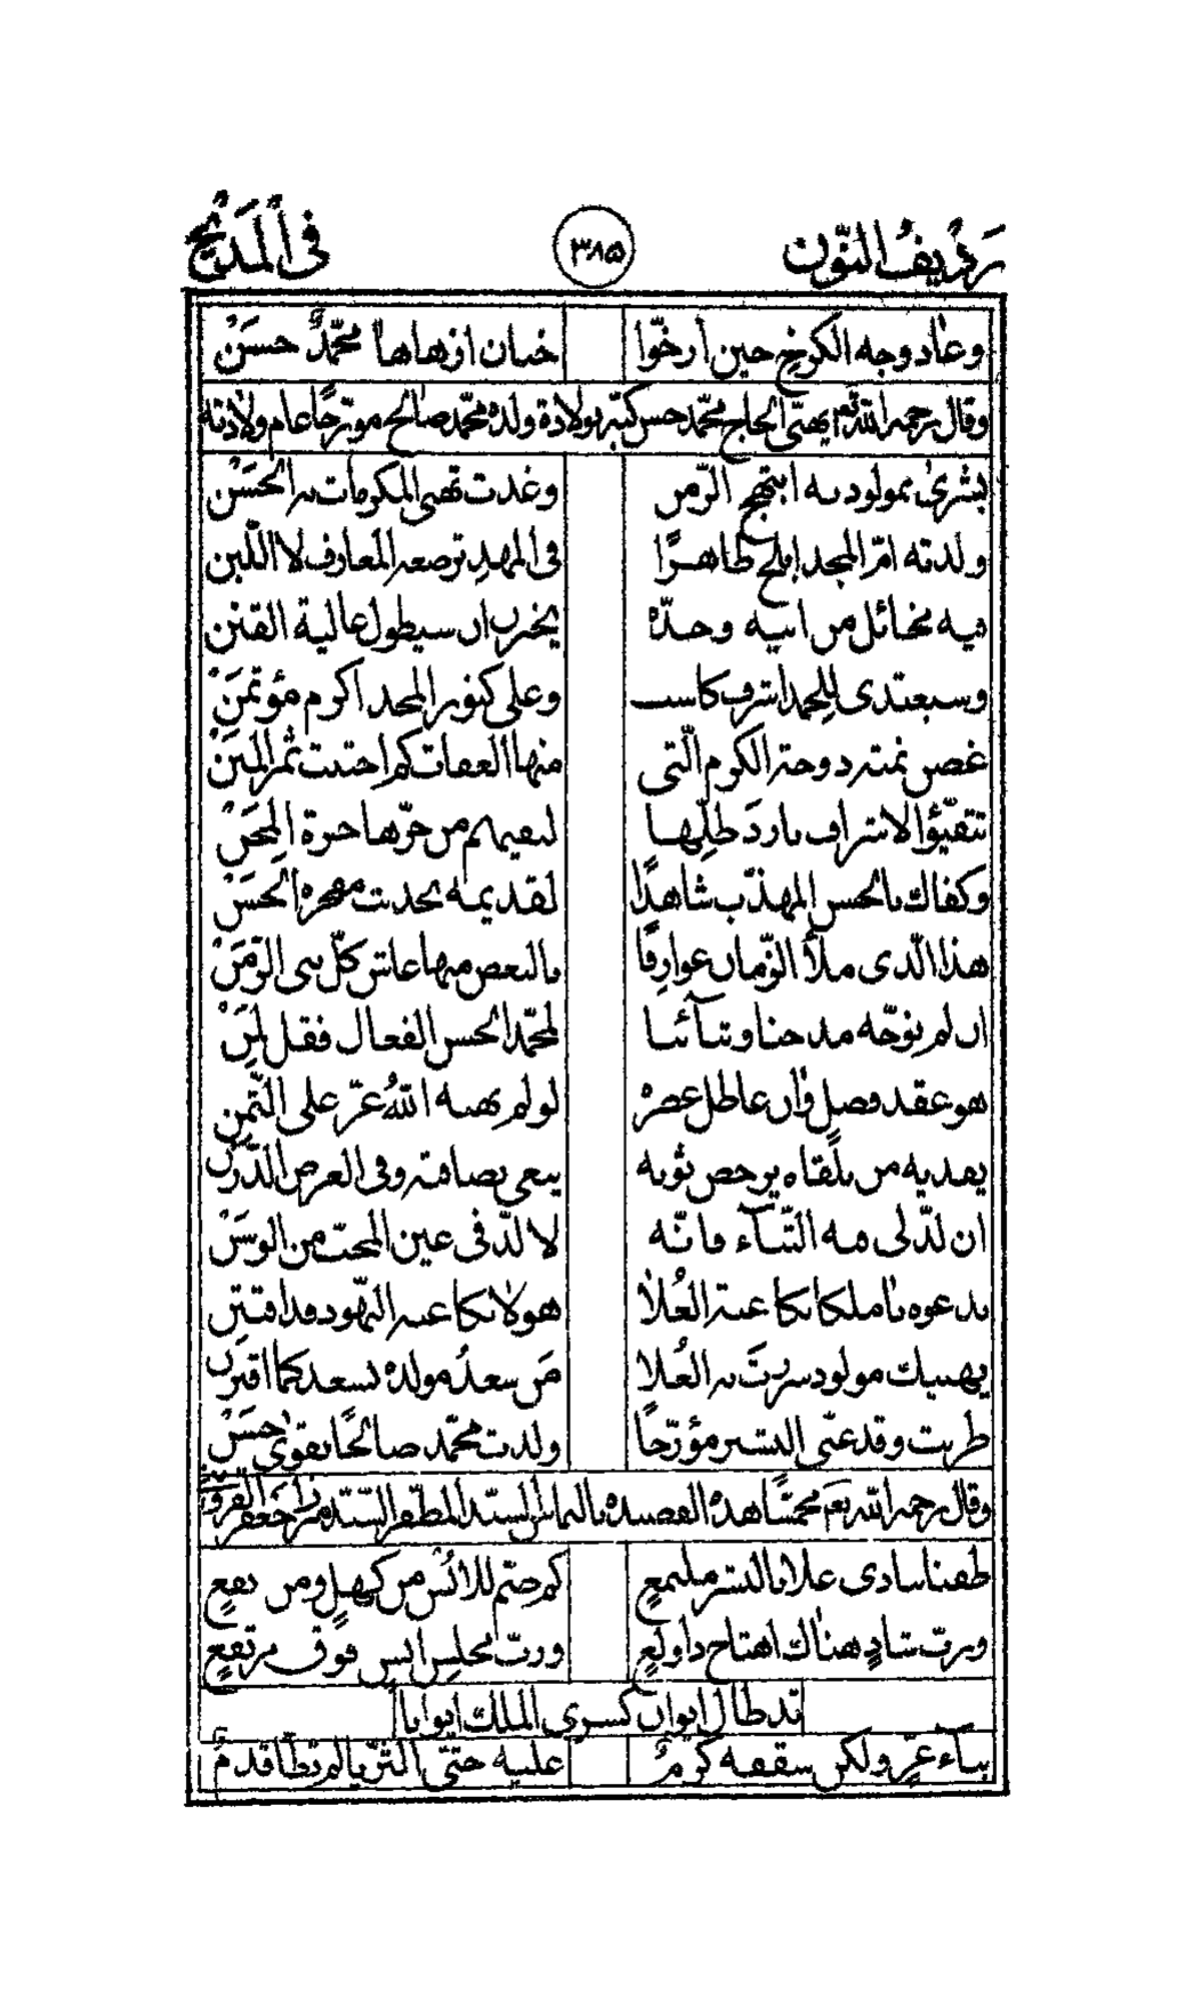 رديف النّون ٣٨٥ في المديح
وعاد وجه الكرخ حين أرخوا خسان ازهاها محمّد حسن
وقال رحمه الله تعم يهنّي الحاج محمّد حسن كبّه بولادة ولده محمّد صالح مورّخا عام ولادته
بشرىٰ بمولود به ابتهج الزّمن وغدت تهني المكرمات به الحسن
ولدته امّ المجد ابلج طاهرًا في المهد ترضعه المعارف لا اللّبن
فيه مخائل من ابيه وجدّه يخبرن ان سيطول عالية القنن
وسيغتدي للحمد اشرف كاسب وعلى كنوز المجد اكرم مؤتمن
غصن نمته دوحة الكرم الّتي منها العفات كم اجتنت ثمر المنن
تتفيّؤ الاشراف بارد ظلّها ليقيهم من حرّها جرة المحن
وكفاك بالحسن المهذّب شاهدًا لقديمه بحديث مفخره الحسن
هذا الّذي ملأ الزّمان عوارفًا بالبعض منها عاش كلّ بني الزّمن
ان لم نوجّه مدحنا وثنائنا لمحمّد الحسن الفعال فقل لمن
هو عقد فضل زان عاطل عصره لو لم يهبه الله عزّ على الثّمن
يفديه من يلقاه يرحض ثوبه يبغي بصافته وفي العرض الدّرن
ان لذّ لي فيه الثّناء فانّه لا لذّ في عين المحبّ من الوسن
يدعوه يا ملكا بكاعبة العُلا هو لا بكاعبة النّهود قد افتتن
يهنيك مولود سررت به العُلا من سعدُ مولده بسعد كما اقترن
طربت وقد غنّى البشير مؤرّخًا ولدت محمّد صالحًا بقوى حسن
وقال رحمه الله تعم مخمّسًا هذه القصيده بالتماس السيّد المظفر السّيّد ميرزا جعفر القزويني
طفنا بنادي علا بالبشر ملتمع كم ضمّ للانس من كهل ومن يفع
وربّ شادٍ هناك اهتاج ذا ولع وربّ مجلس انس فوق مرتفع
قد طال ايوان كسرى الملك ايوانا
بناء عزّ ولكن سقفه كرم عليه حتّى الثّريّا لم تطأ قدم